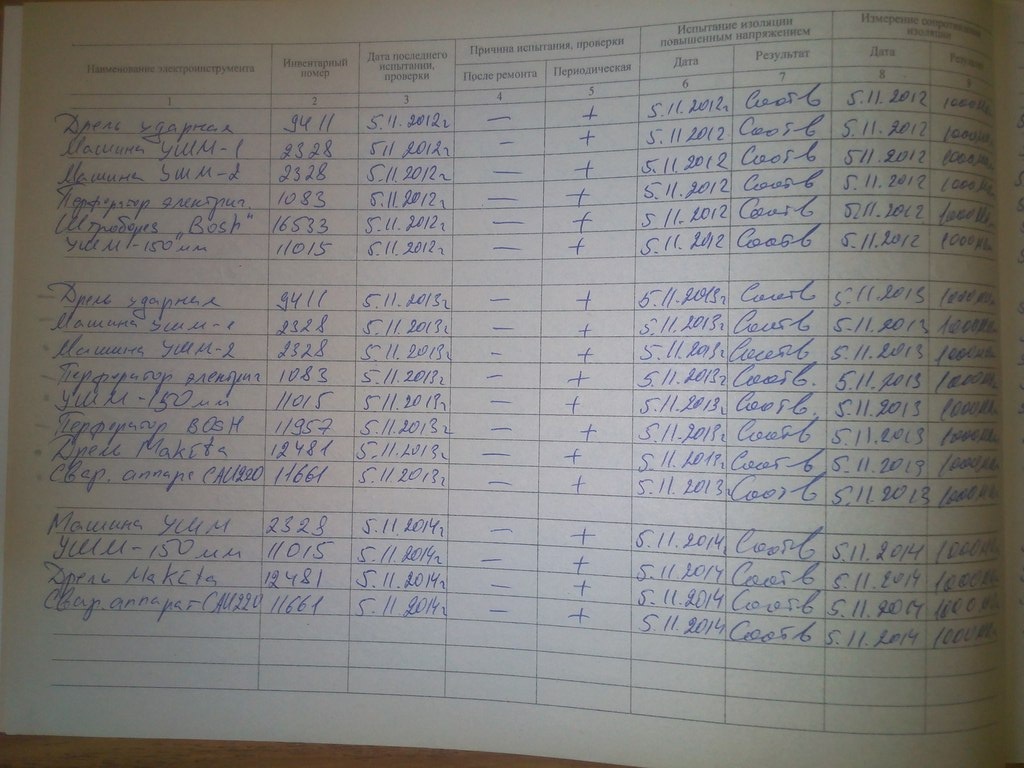 Наименование электроинструмента Инвентарный номер Дата последнего испытания, проверки Причина испытания, проверки Испытание изоляции повышенным напряжением Измерение сопротивления изоляции
После ремонта Периодическая Дата Результат Дата
1 2 3 4 5 6 7 8 9
Дрель ударная 9411 5.11.2012г — + 5.11.2012г Соотв 5.11.2012
Машина УШМ-1 2328 5.11.2012г — + 5.11.2012 Соотв 5.11.2012
Машина УШМ-2 2328 5.11.2012г — + 5.11.2012 Соотв 5.11.2012
Перфератор электрич. 1083 5.11.2012г — + 5.11.2012 Соотв 5.11.2012
Штроборез „Bosh" 16533 5.11.2012г — + 5.11.2012 Соотв 5.11.2012
УШМ-150 мм 11015 5.11.2012г — + 5.11.2012 Соотв 5.11.2012
Дрель ударная 9411 5.11.2013г — + 5.11.2013г Соотв 5.11.2013
Машина УШМ-1 2328 5.11.2013г — + 5.11.2013г Соотв 5.11.2013
Машина УШМ-2 2328 5.11.2013г — + 5.11.2013г Соотв 5.11.2013
Перфератор электрич 1083 5.11.2013г — + 5.11.2013г Соотв. 5.11.2013
УШМ-150 мм 11015 5.11.2013г — + 5.11.2013г Соотв. 5.11.2013
Перфератор BOSH 11957 5.11.2013г — + 5.11.2013г Соотв 5.11.2013
Дрель Makita 12481 5.11.2013г — + 5.11.2013г Соотв 5.11.2013
Свар. аппарат САИ220 11661 5.11.2013г — + 5.11.2013г Соотв 5.11.2013
Машина УШМ 2328 5.11.2014г — + 5.11.2014 Соотв 5.11.2014
УШМ-150 мм 11015 5.11.2014г — + 5.11.2014 Соотв 5.11.2014
Дрель Makita 12481 5.11.2014г — + 5.11.2014 Соотв 5.11.2014
Свар. аппарат САИ220 11661 5.11.2014г — + 5.11.2014 Соотв 5.11.2014